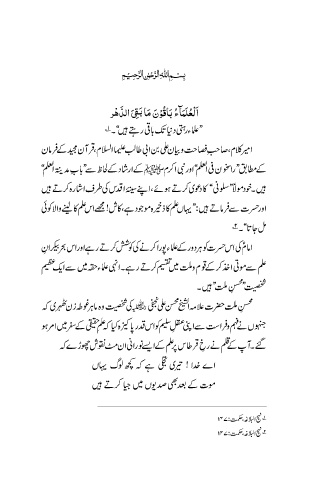 بِسْمِ اللهِ الرَّحْمٰنِ الرَّحِيْمِ
اَلْعُلَمَآءُ بَاقُوْنَ مَا بَقِیَ الدَّهْر
”علماء رہتی دنیا تک باقی رہتے ہیں“۔۱
امیر کلام، صاحب فصاحت و بیان علی بن ابی طالب علیہما السلام، قرآن مجید کے فرمان
کے مطابق ”راسخون فی العلم“ اور نبی اکرم ﷺ کے ارشاد کے لحاظ سے ”باب مدینۃ العلم“
ہیں۔ خود مولاؑ ”سلونی“ کا دعویٰ کرتے ہوئے، اپنے سینۂ اقدس کی طرف اشارہ کرتے ہیں
اور حسرت سے فرماتے ہیں: ”یہاں علم کا ذخیرہ موجود ہے، کاش! مجھے اس علم کا لینے والا کوئی
مل جاتا“۔۲
امامؑ کی اس حسرت کو ہر دور کے علماء پورا کرنے کی کوشش کرتے رہے اور اس بحر بیکران
علم سے موتی اخذ کر کے قوم و ملت میں تقسیم کرتے رہے۔ انہی علماء حقہ میں سے ایک عظیم
شخصیت ”محسن ملت“ ہیں۔
محسن ملت حضرت علامہ الشیخ محسن علی نجفی کی شخصیت وہ ماہر غوطہ زن ٹھہری کہ
جنہوں نے فہم و فراست سے اپنی عقل سلیم کو اس قدر پاکیزہ کیا کہ علم حقیقی کے سفر میں امر ہو
گئے۔ آپ کے قلم نے رخِ قرطاس پر علم کے ایسے نورانی ان مٹ نقوش چھوڑے کہ
اے خدا! تیری تجلی ہے کہ کچھ لوگ یہاں
موت کے بعد بھی صدیوں میں جیا کرتے ہیں
۱۔ نہج البلاغہ، حکمت: ۱۴۷
۲۔ نہج البلاغہ، حکمت: ۱۴۷